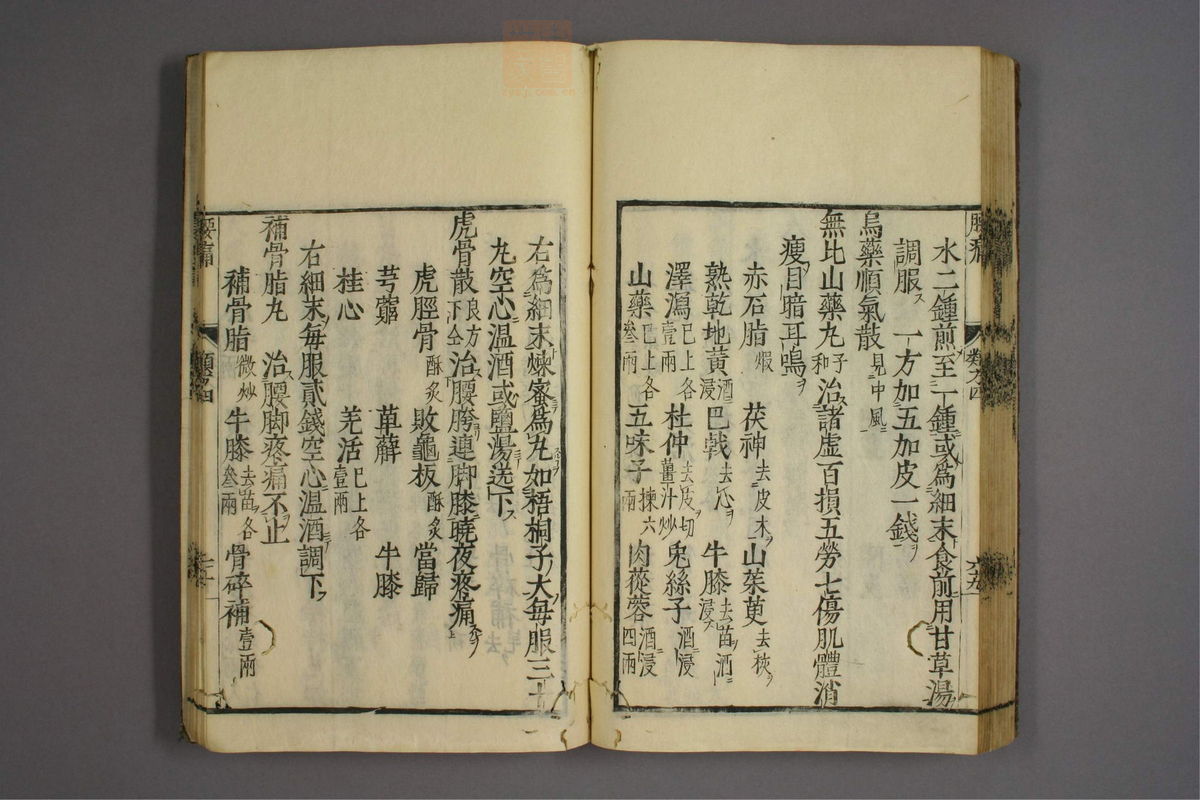 水二鍾煎至一鍾或爲細末食前用甘草湯
調服 一方加五加皮一錢
烏藥順氣散 見中風
無比山藥丸 和子 治諸虛百損五勞七傷肌體消
瘦目暗耳鳴
赤石脂 煆 茯神 去皮木 山茱萸 去核
熟乾地黃 酒浸 巴戟 去心 牛膝 去苗酒浸
澤瀉 已上各壹兩 杜仲 去皮切薑汁炒 兎絲子 酒浸
山藥 已上各叁兩 五味子 揀六兩 肉蓯蓉 酒浸四兩
右爲細末煉蜜爲丸如梧桐子大每服三十
丸空心溫酒或鹽湯送下
虎骨散 良方下仝 治腰胯連脚膝曉夜疼痛
虎脛骨 酥炙 敗龜板 酥炙 當歸
芎藭 萆薢 牛膝
桂心 羌活 已上各壹兩
右細末每服貳錢空心溫酒調下
補骨脂丸 治腰脚疼痛不止
補骨脂 微炒 牛膝 去苗各叁兩 骨碎補 壹兩
腰痛